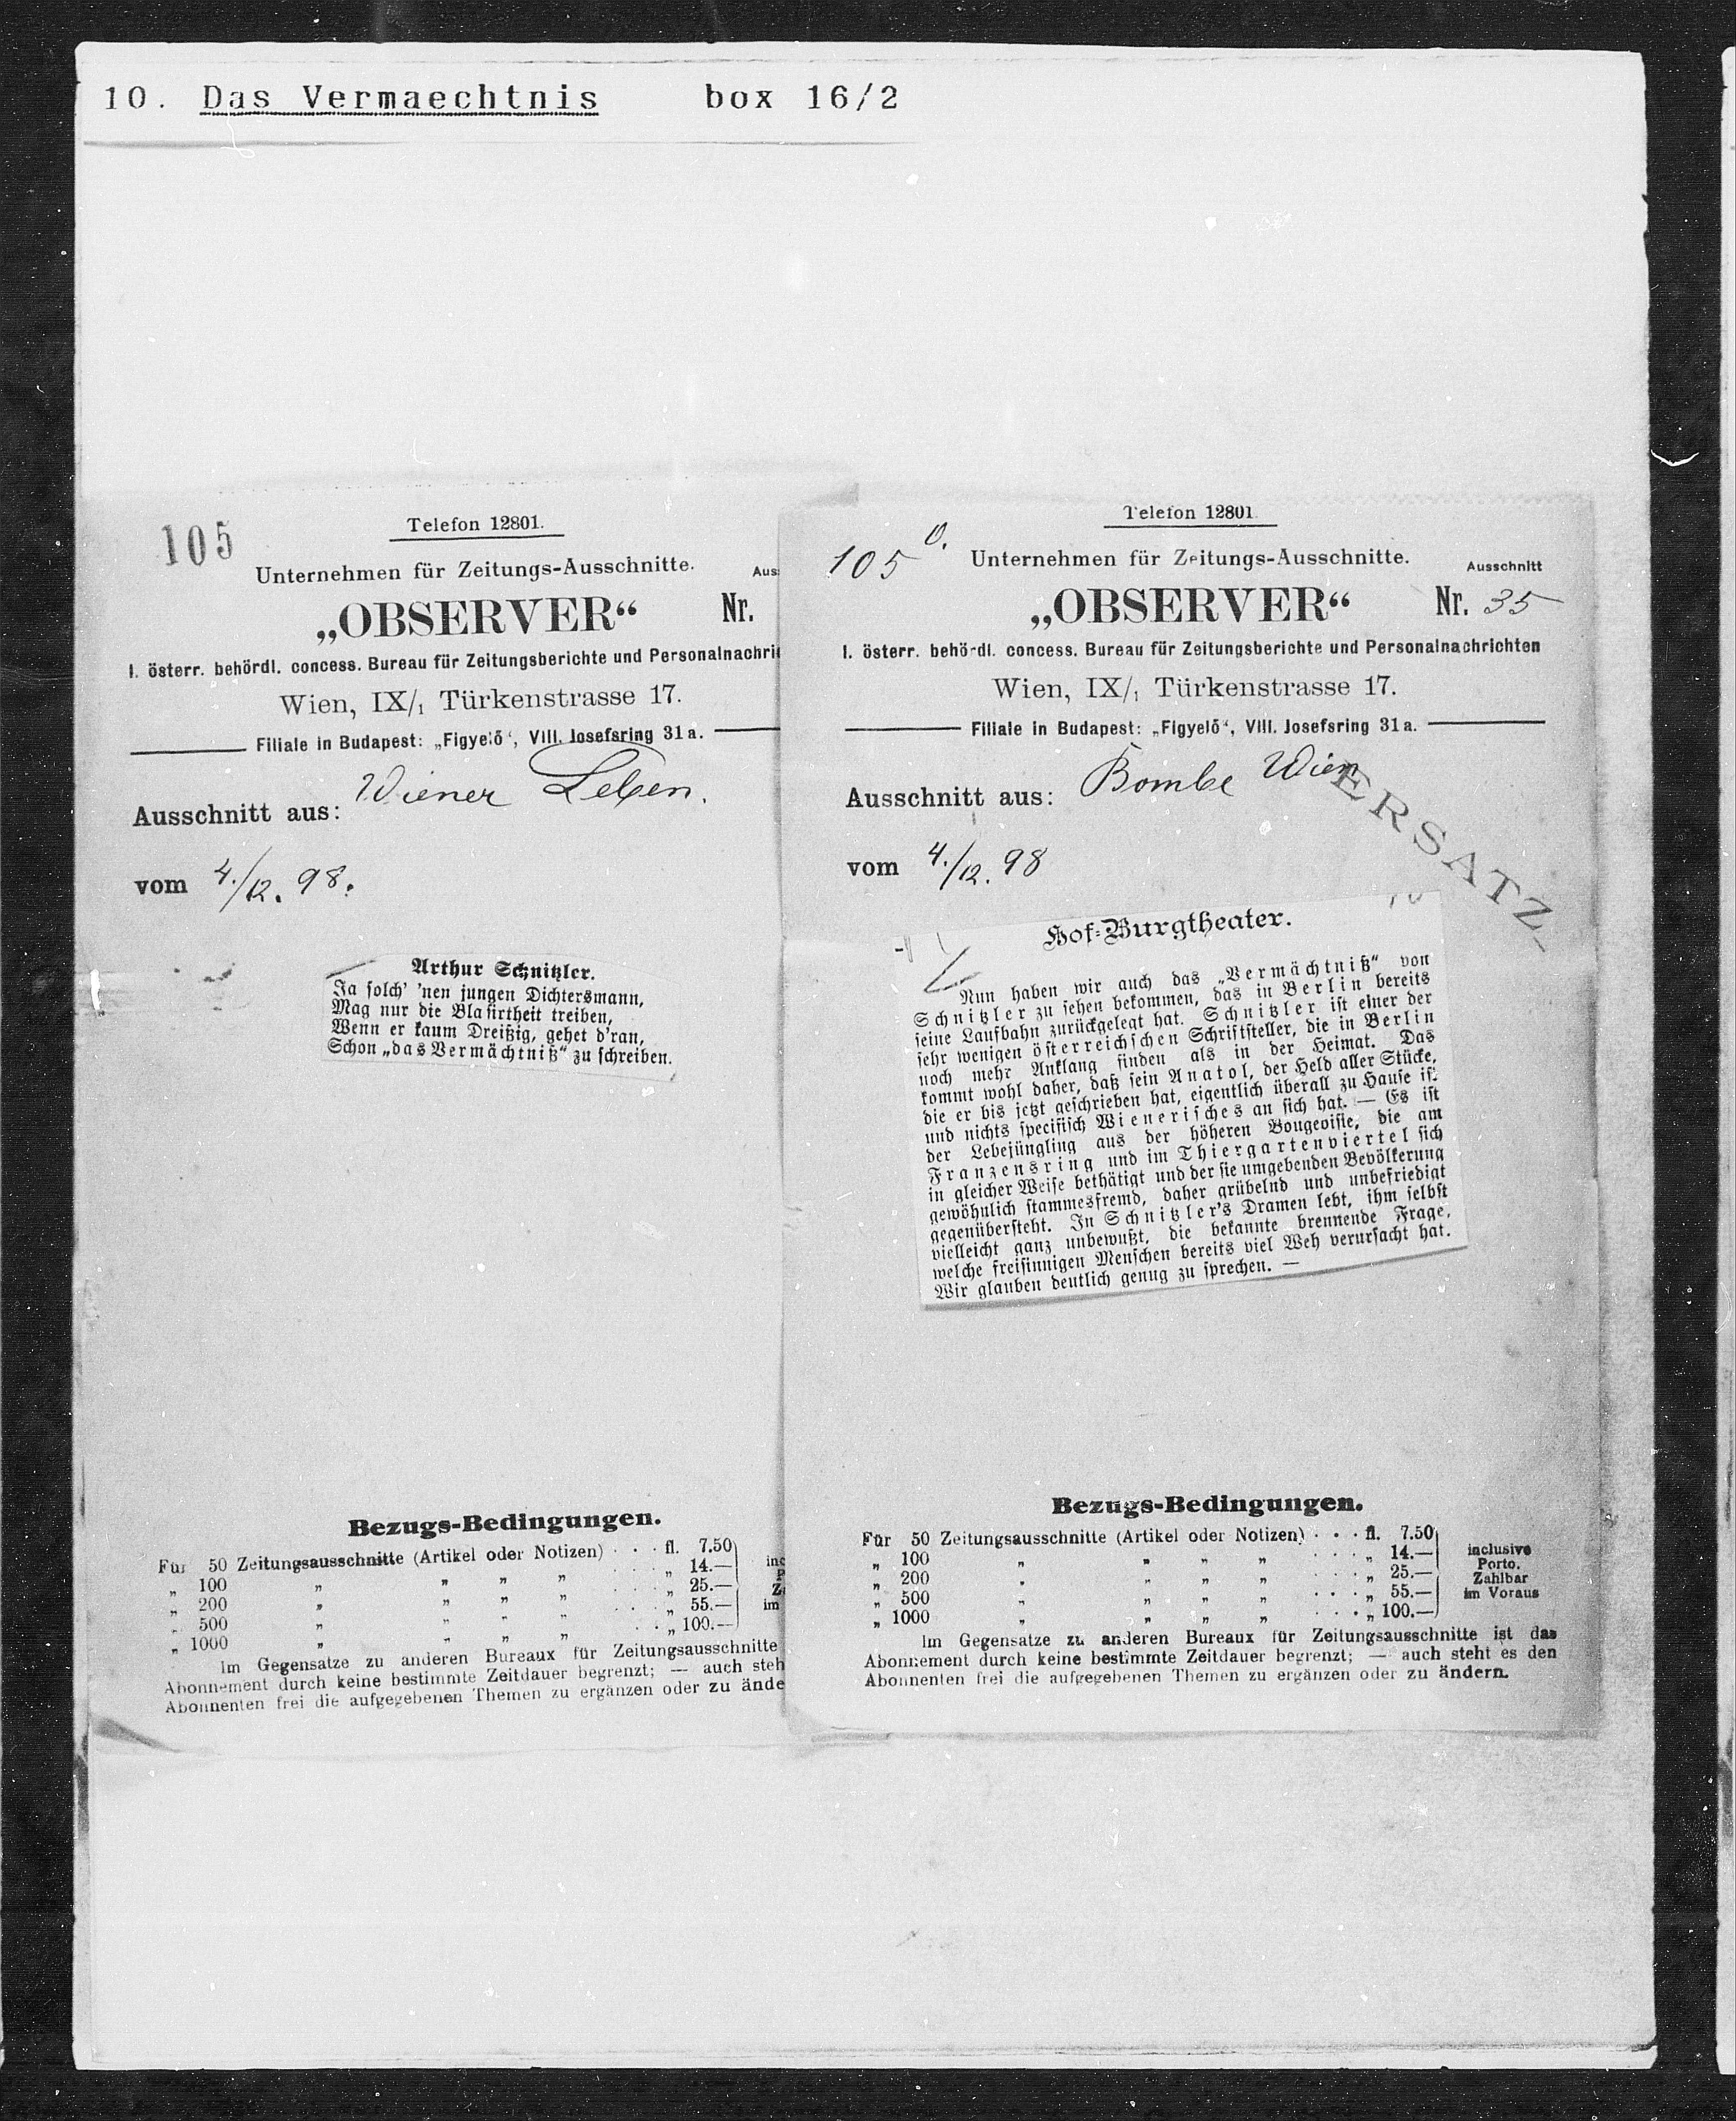 10. Das Vermaechtnis box 16/2
105
Telefon 12801.
Unternehmen für Zeitungs-Ausschnitte.
Aus
„OBSERVER“ Nr.
I. österr. behördl. concess. Bureau für Zeitungsberichte und Personalnachri
Wien, IX/1 Türkenstrasse 17.
Filiale in Budapest: „Figyelő“, VIII. Josefsring 31a.
Ausschnitt aus: Wiener Leben.
vom 4./12. 98.
Arthur Schnitzler.
Ja solch' 'nen jungen Dichtersmann,
Mag nur die Blasirtheit treiben,
Wenn er kaum Dreißig, gehet d'ran,
Schon „das Vermächtniß“ zu schreiben.
Bezugs-Bedingungen.
Für 50 Zeitungsausschnitte (Artikel oder Notizen) . . . fl. 7.50
„ 100 „ „ „ „ . . . „ 14.— inc
„ 200 „ „ „ „ . . . „ 25.— P
„ 500 „ „ „ „ . . . „ 55.— Z
„ 1000 „ „ „ „ . . „ 100.— im
Im Gegensatze zu anderen Bureaux für Zeitungsausschnitte
Abonnement durch keine bestimmte Zeitdauer begrenzt; — auch steh
Abonnenten frei die aufgegebenen Themen zu ergänzen oder zu ände
Telefon 12801.
105 0.
Unternehmen für Zeitungs-Ausschnitte.
Ausschnitt
„OBSERVER“ Nr. 35
I. österr. behördl. concess. Bureau für Zeitungsberichte und Personalnachrichten
Wien, IX/1 Türkenstrasse 17.
Filiale in Budapest: „Figyelő“, VIII. Josefsring 31a.
Ausschnitt aus: Bombe Wien
ERSATZ-
vom 4./12. 98
Hof-Burgtheater.
Nun haben wir auch das „Vermächtniß“ von
Schnitzler zu sehen bekommen, das in Berlin bereits
seine Laufbahn zurückgelegt hat. Schnitzler ist einer der
sehr wenigen österreichischen Schriftsteller, die in Berlin
noch mehr Anklang finden als in der Heimat. Das
kommt wohl daher, daß sein Anatol, der Held aller Stücke,
die er bis jetzt geschrieben hat, eigentlich überall zu Hause ist
und nichts specifisch Wienerisches an sich hat. — Es ist
der Lebejüngling aus der höheren Bougeoisie, die am
Franzensring und im Thiergartenviertel sich
in gleicher Weise bethätigt und der sie umgebenden Bevölkerung
gewöhnlich stammesfremd, daher grübelnd und unbefriedigt
gegenübersteht. In Schnitzler's Dramen lebt, ihm selbst
vielleicht ganz unbewußt, die bekannte brennende Frage,
welche freisinnigen Menschen bereits viel Weh verursacht hat.
Wir glauben deutlich genug zu sprechen. —
Bezugs-Bedingungen.
Für 50 Zeitungsausschnitte (Artikel oder Notizen) . . . fl. 7.50
„ 100 „ „ „ „ . . . „ 14.— inclusive
„ 200 „ „ „ „ . . . „ 25.— Porto.
„ 500 „ „ „ „ . . . „ 55.— Zahlbar
„ 1000 „ „ „ „ . . . „ 100.— im Voraus
Im Gegensatze zu anderen Bureaux für Zeitungsausschnitte ist das
Abonnement durch keine bestimmte Zeitdauer begrenzt; — auch steht es den
Abonnenten frei die aufgegebenen Themen zu ergänzen oder zu ändern.